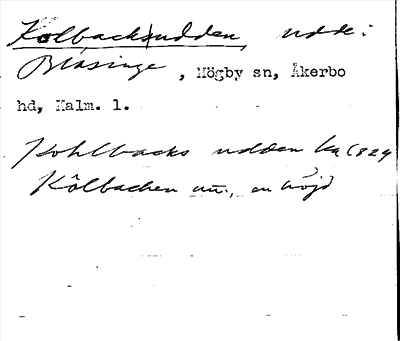 Kolbacksudden, udde:
Bläsinge, Högby sn, Åkerbo
hd, Kalm. l.
Kohlbacks udden ka 1824
Kôlbacken utt., en höjd